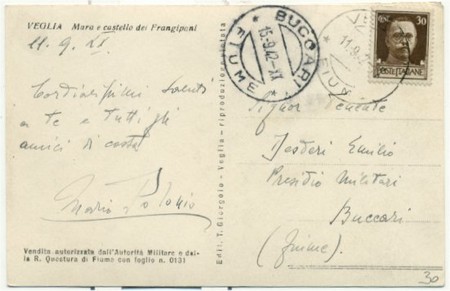 VEGLIA Mura e castello dei Frangiponi
11.9.XX
Cordialissimi saluti
a te e tutti gli
amici di costì
Mario
Vendita autorizzata dall'Autorità Militare e dal-
la R. Questura di Fiume con foglio n. 0131
Edit. T. Giorgolo - Veglia - riproduzione vietata
BUCCARI
15.9.42-XX
FIUME
11.9.
FIUM
30
POSTE ITALIANE
Signor Tenente
Tesdori Emilio
Presidio Militari
Buccari
(Fiume).
30